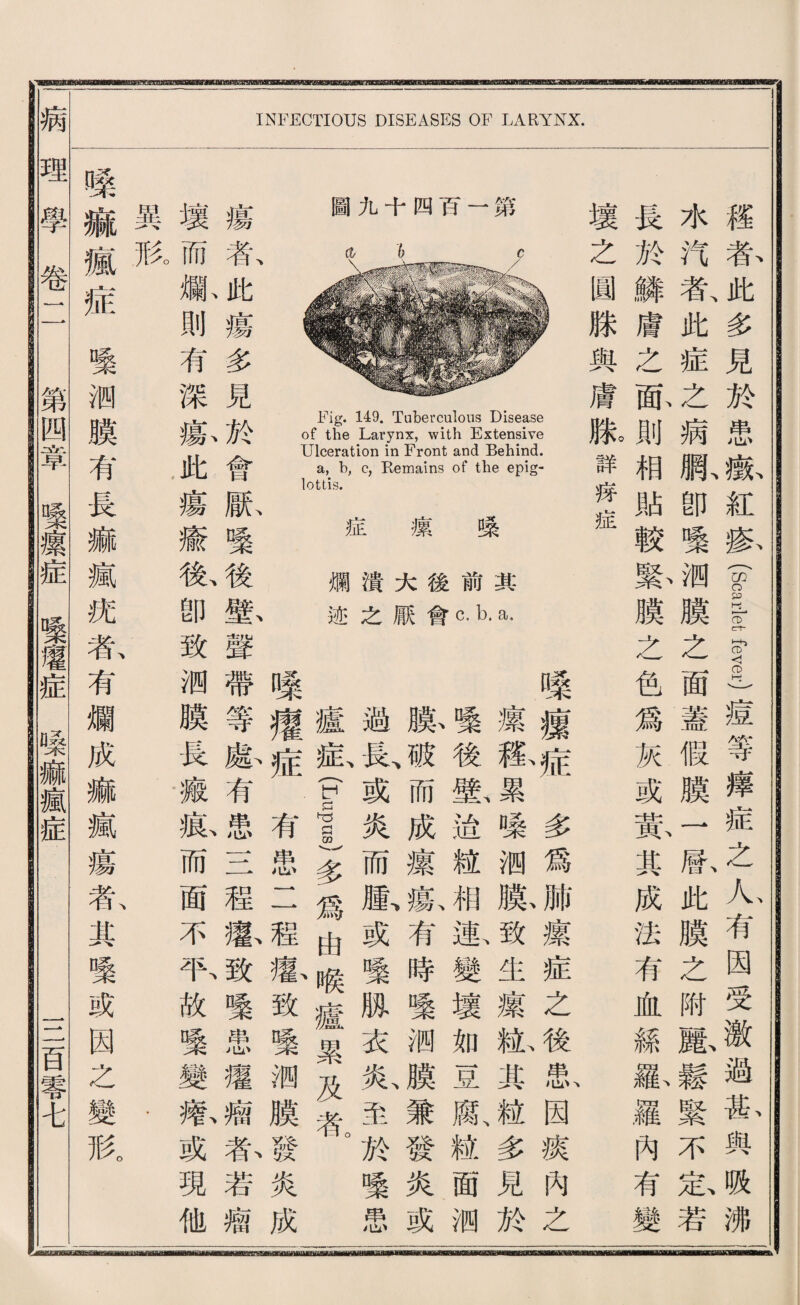 INFECTIOUS DISEASES OF LARYNX.
穜者、此多見於患癥、紅疹、(Scarlet fever) 痘等瘴症之人、有因受激過甚、與吸沸
水汽者、此症之病腡、卽嗓泗膜之面蓋假膜一層、此膜之附麗、鬆緊不定、若
長於鱗膚之面、則相貼較緊、膜之色爲灰或黃、其成法有血絲羅、羅內有變
壞之圓脒與膚脒。詳疨症
第一百四十九圖
a b c
Fig. 149. Tuberculous Disease
of the Larynx, with Extensive
Ulceration in Front and Behind.
a, b, c, Remains of the epig-
lottis.
嗓瘰症
其前後大潰爛
a. b. c. 會厭之迹
嗓瘰症 多爲肺瘰症之後患、因痰內之
瘰穜、累嗓泗膜、致生瘰粒、其粒多見於
嗓後壁、迨粒相連、變壞如豆腐、粒面泗
膜、破而成瘰瘍、有時嗓泗膜兼發炎或
過長、或炎而腫、或嗓脵衣炎、至於嗓患
瘧症、(Lupus) 多爲由喉瘧累及者。
嗓癯症 有患二程癯、致嗓泗膜發炎成
瘍者、此瘍多見於會厭、嗓後壁、聲帶等處、有患三程癯、致嗓患癯瘤者、若瘤
壞而爛、則有深瘍、此瘍瘉後、卽致泗膜長瘢痕、而面不平、故嗓變瘠、或現他
異形。
嗓痲瘋症 嗓泗膜有長痲瘋疣者、有爛成痲瘋瘍者、其嗓或因之變形。
病理學卷二 第四章 嗓瘰症 嗓癯症 嗓痲瘋症 三百零七